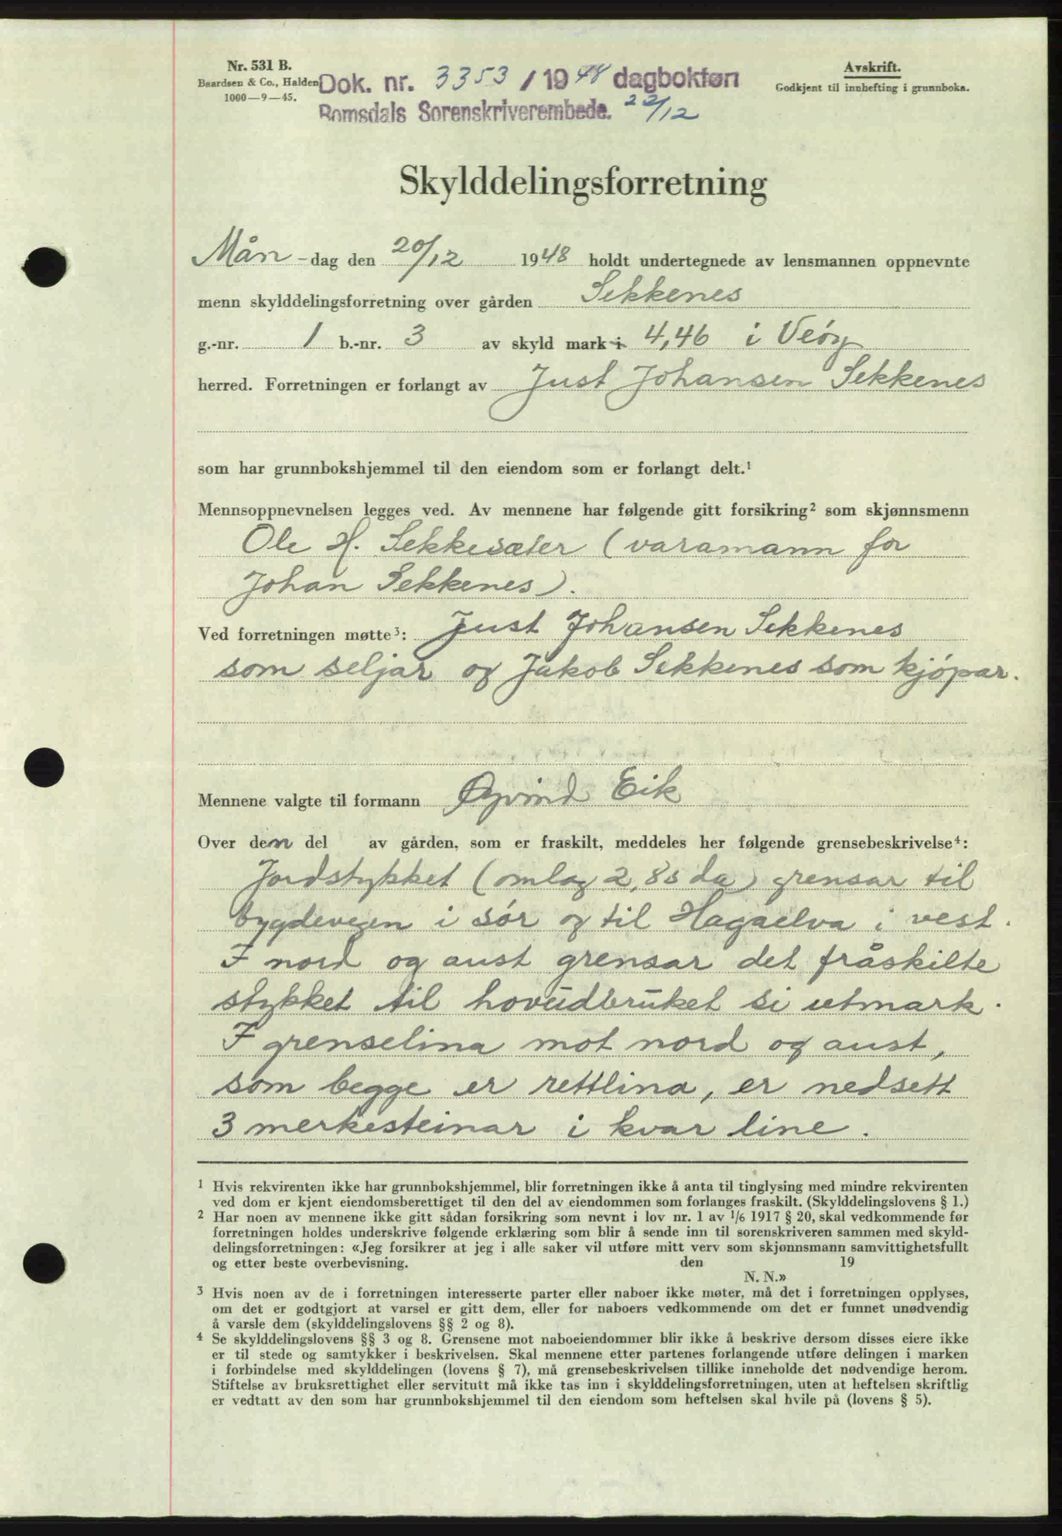 Nr. 531 B.
Baardsen & Co., Halden
1000—9—45.
Dok. nr. 3353 / 1948 dagbokført
Romsdals Sorenskriverembede. 22/12
Avskrift.
Godkjent til innhefting i grunnboka.
Skylddelingsforretning
Mån-dag den 20/12 1948 holdt undertegnede av lensmannen oppnevnte
menn skylddelingsforretning over gården Sekkenes
g.-nr. 1 b.-nr. 3 av skyld mark i 4,46 i Veøy
herred. Forretningen er forlangt av Just Johansen Sekkenes
som har grunnbokshjemmel til den eiendom som er forlangt delt.¹
Mennsoppnevnelsen legges ved. Av mennene har følgende gitt forsikring² som skjønnsmenn
Ole H. Sekkesæter (varamann for
Johan Sekkenes).
Ved forretningen møtte³: Just Johansen Sekkenes
som seljar og Jakob Sekkenes som kjøpar.
Mennene valgte til formann Øyvind Eik
Over den del av gården, som er fraskilt, meddeles her følgende grensebeskrivelse⁴:
Jordstykket (omlag 2,85 da) grensar til
bygdevegen i sør og til Hagaelva i vest.
I nord og aust grensar det fråskilte
stykket til hovudbruket si utmark.
I grenselina mot nord og aust,
som begge er rettlina, er nedsett
3 merkesteinar i kvar line.
¹ Hvis rekvirenten ikke har grunnbokshjemmel, blir forretningen ikke å anta til tinglysing med mindre rekvirenten
ved dom er kjent eiendomsberettiget til den del av eiendommen som forlanges fraskilt. (Skylddelingslovens § 1.)
² Har noen av mennene ikke gitt sådan forsikring som nevnt i lov nr. 1 av 1/6 1917 § 20, skal vedkommende før
forretningen holdes underskrive følgende erklæring som blir å sende inn til sorenskriveren sammen med skyld-
delingsforretningen: «Jeg forsikrer at jeg i alle saker vil utføre mitt verv som skjønnsmann samvittighetsfullt
og etter beste overbevisning. den 19
N. N.»
³ Hvis noen av de i forretningen interesserte parter eller naboer ikke møter, må det i forretningen opplyses,
om det er godtgjort at varsel er gitt dem, eller for naboers vedkommende om det er funnet unødvendig
å varsle dem (skylddelingslovens §§ 2 og 8).
⁴ Se skylddelingslovens §§ 3 og 8. Grensene mot naboeiendommer blir ikke å beskrive dersom disses eiere ikke
er til stede og samtykker i beskrivelsen. Skal mennene etter partenes forlangende utføre delingen i marken
i forbindelse med skylddelingen (lovens § 7), må grensebeskrivelsen tillike inneholde det nødvendige herom.
Stiftelse av bruksrettighet eller servitutt må ikke tas inn i skylddelingsforretningen, uten at heftelsen skriftlig
er vedtatt av den som har grunnbokshjemmel til den eiendom som heftelsen skal hvile på (lovens § 5).